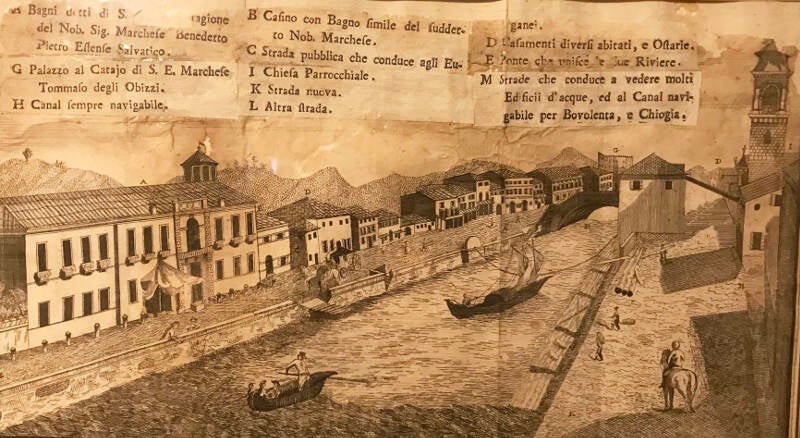 A Bagni detti di S.
del Nob. Sig. Marchese Benedetto
Pietro Estense Salvatico.
G Palazzo al Catajo di S. E. Marchese
Tommaso degli Obizzi.
H Canal sempre navigabile.
B Casino con Bagno simile del suddet-
to Nob. Marchese.
C Strada pubblica che conduce agli Eu-
I Chiesa Parrocchiale.
K Strada nuova.
L Altra strada.
ganei.
D Casamenti diversi abitati, e Ostarie.
E Ponte che unisce le due Riviere.
M Strade che conduce a vedere molti
Edificii d'acque, ed al Canal navi-
gabile per Bovolenta, e Chiogia.
A
D
G
D
I
H